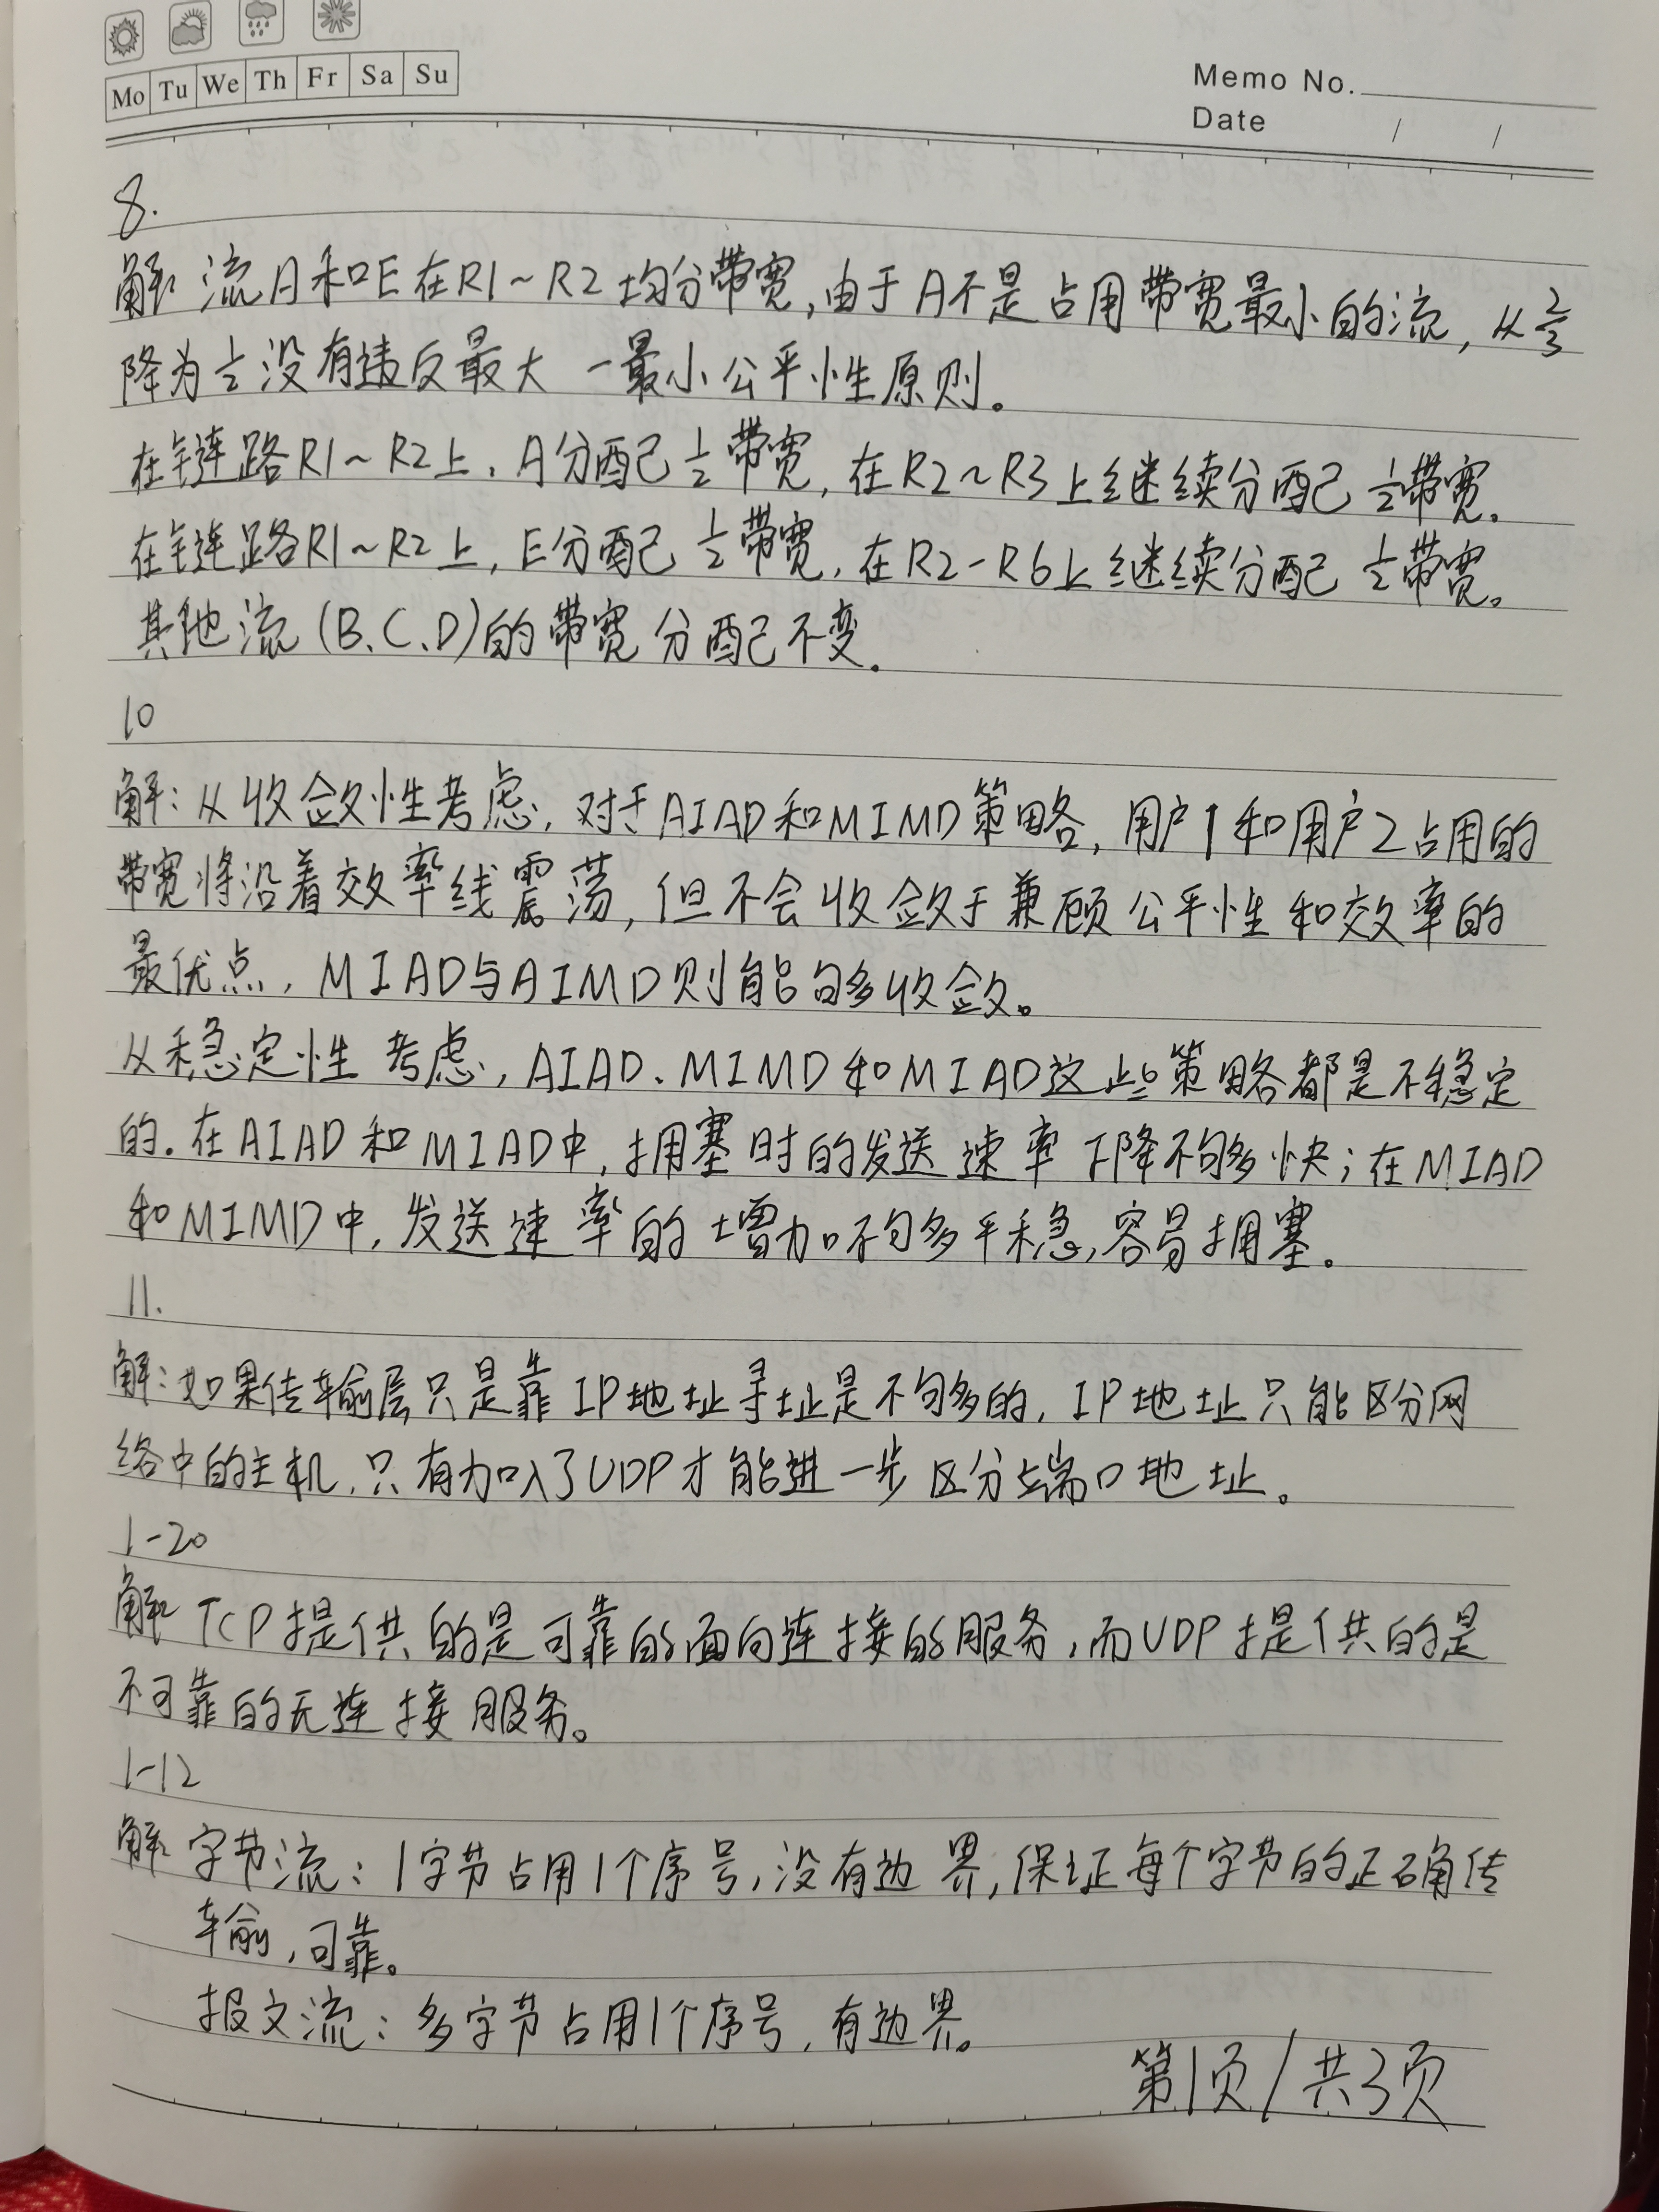 Mo Tu We Th Fr Sa Su
Memo No.
Date / /
8.
解: 流A和E在R1~R2均分带宽,由于A不是占用带宽最小的流,从2/3
降为1/2没有违反最大一最小公平性原则。
在链路R1~R2上,A分配1/2带宽,在R2~R3上继续分配1/2带宽。
在链路R1~R2上,E分配1/2带宽,在R2-R6上继续分配1/2带宽。
其他流(B、C、D)的带宽分配不变。
10
解:从收敛性考虑,对于AIAD和MIMD策略,用户1和用户2占用的
带宽将沿着效率线震荡,但不会收敛于兼顾公平性和效率的
最优点,MIAD与AIMD则能够收敛。
从稳定性考虑,AIAD、MIMD和MIAD这些策略都是不稳定
的.在AIAD和MIAD中,拥塞时的发送速率下降不够快;在MIAD
和MIMD中,发送速率的增加不够平稳,容易拥塞。
11.
解:如果传输层只是靠IP地址寻址是不够的,IP地址只能区分网
络中的主机,只有加入了UDP才能进一步区分端口地址。
1-20
解: TCP提供的是可靠的面向连接的服务,而UDP提供的是
不可靠的无连接服务。
1-12
解: 字节流:1字节占用1个序号,没有边界,保证每个字节的正确传
输,可靠。
报文流:多字节占用1个序号,有边界。
第1页/共3页